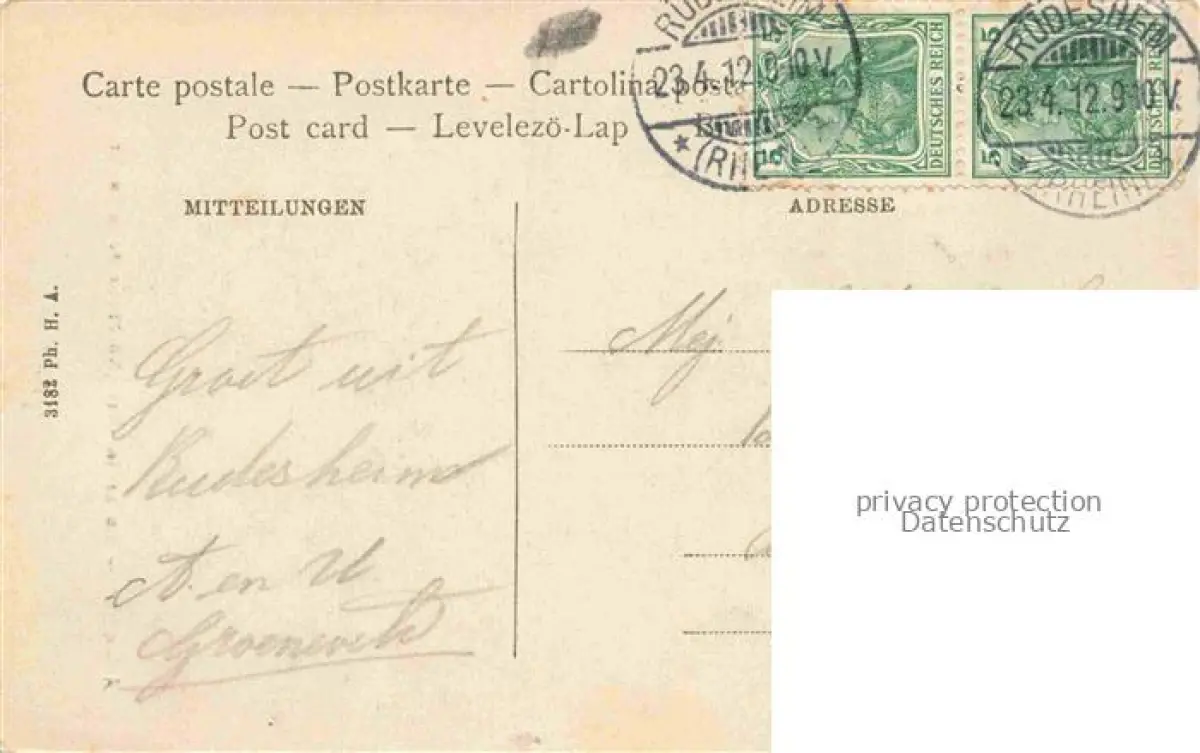 RÜDESHEIM
23.4.12.9-10V.
* (RHE
DEUTSCHES REICH
5
RÜDESHEIM
23.4.12.9-10V.
(RHEIN)
DEUTSCHES REICH
5
5
Carte postale — Postkarte — Cartolina posta
Post card — Levelező-Lap —
MITTEILUNGEN
ADRESSE
3182 Ph. H. A.
Groet uit
Rudesheim
A. en U
Mej
privacy protection
Datenschutz